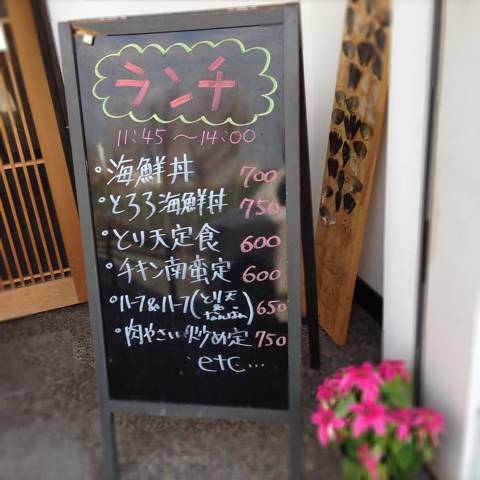 ランチ
11:45 ～ 14:00
・海鮮丼 700
・とろろ海鮮丼 750
・とり天定食 600
・チキン南蛮定 600
・ハーフ&ハーフ(とり天 & なんばん) 650
・肉やさい炒め定 750
etc...